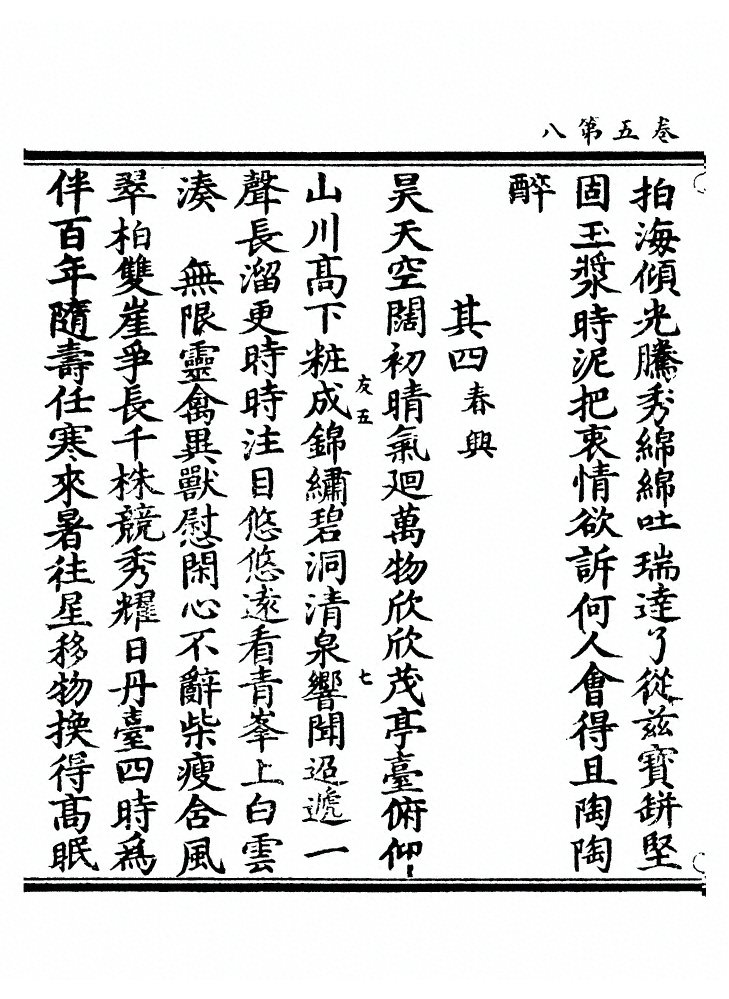 卷五第八
拍海傾光騰秀綿綿吐瑞達了從茲寶缾堅
固玉漿時泥把衷情欲訴何人會得且陶陶
醉
其四春興
昊天空闊初晴氣廻萬物欣欣茂亭臺俯仰
山川高下粧成錦繡碧洞清泉響聞迢遞一
友五
七
聲長溜更時時注目悠悠遠看青峯上白雲
湊 無限靈禽異獸慰閑心不辭柴瘦含風
翠柏雙崖爭長千株競秀耀日丹臺四時為
伴百年隨壽任寒來暑往星移物換得高眠